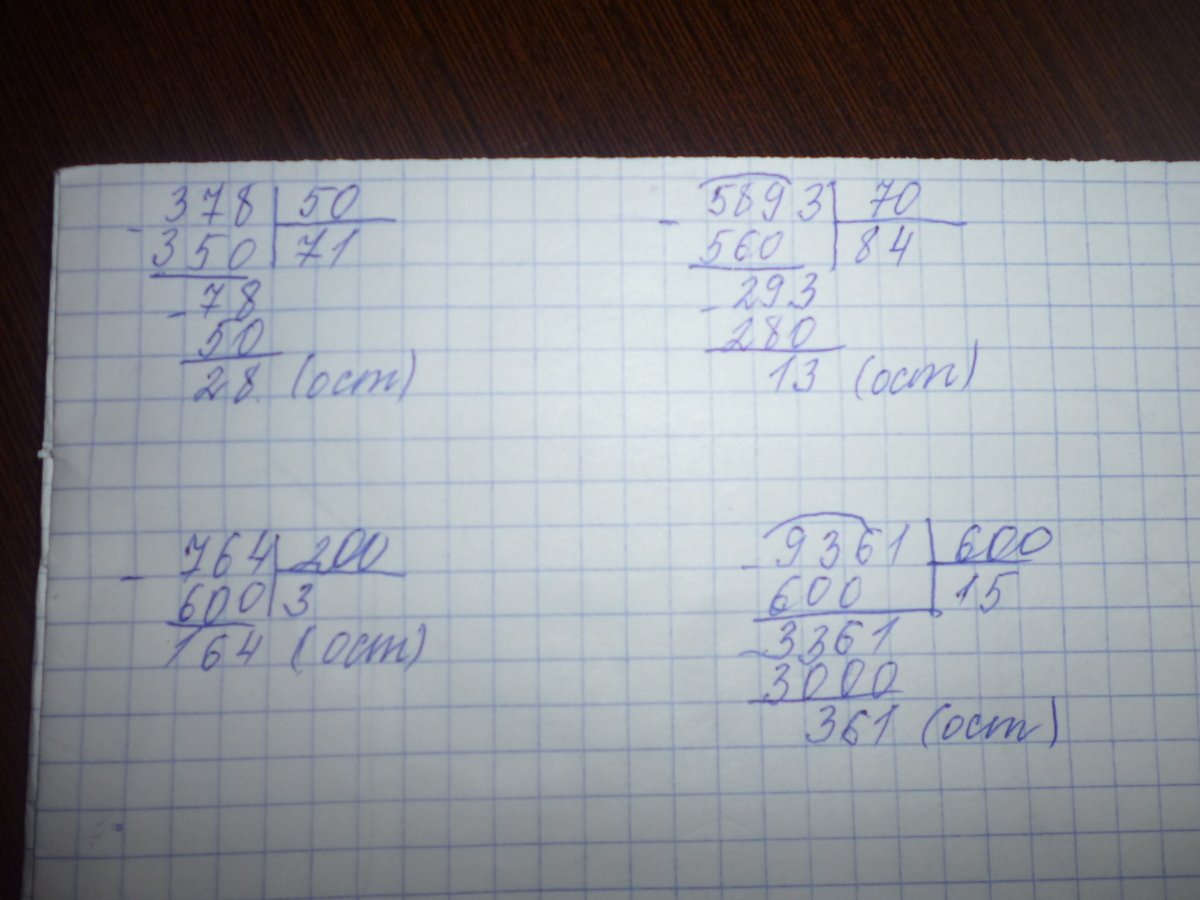 378 50
- 350 71
- 78
50
28 (ост)
5893 70
- 560 84
- 293
280
13 (ост)
764 200
- 600 3
164 (ост)
9361 600
- 600 15
- 3361
3000
361 (ост)